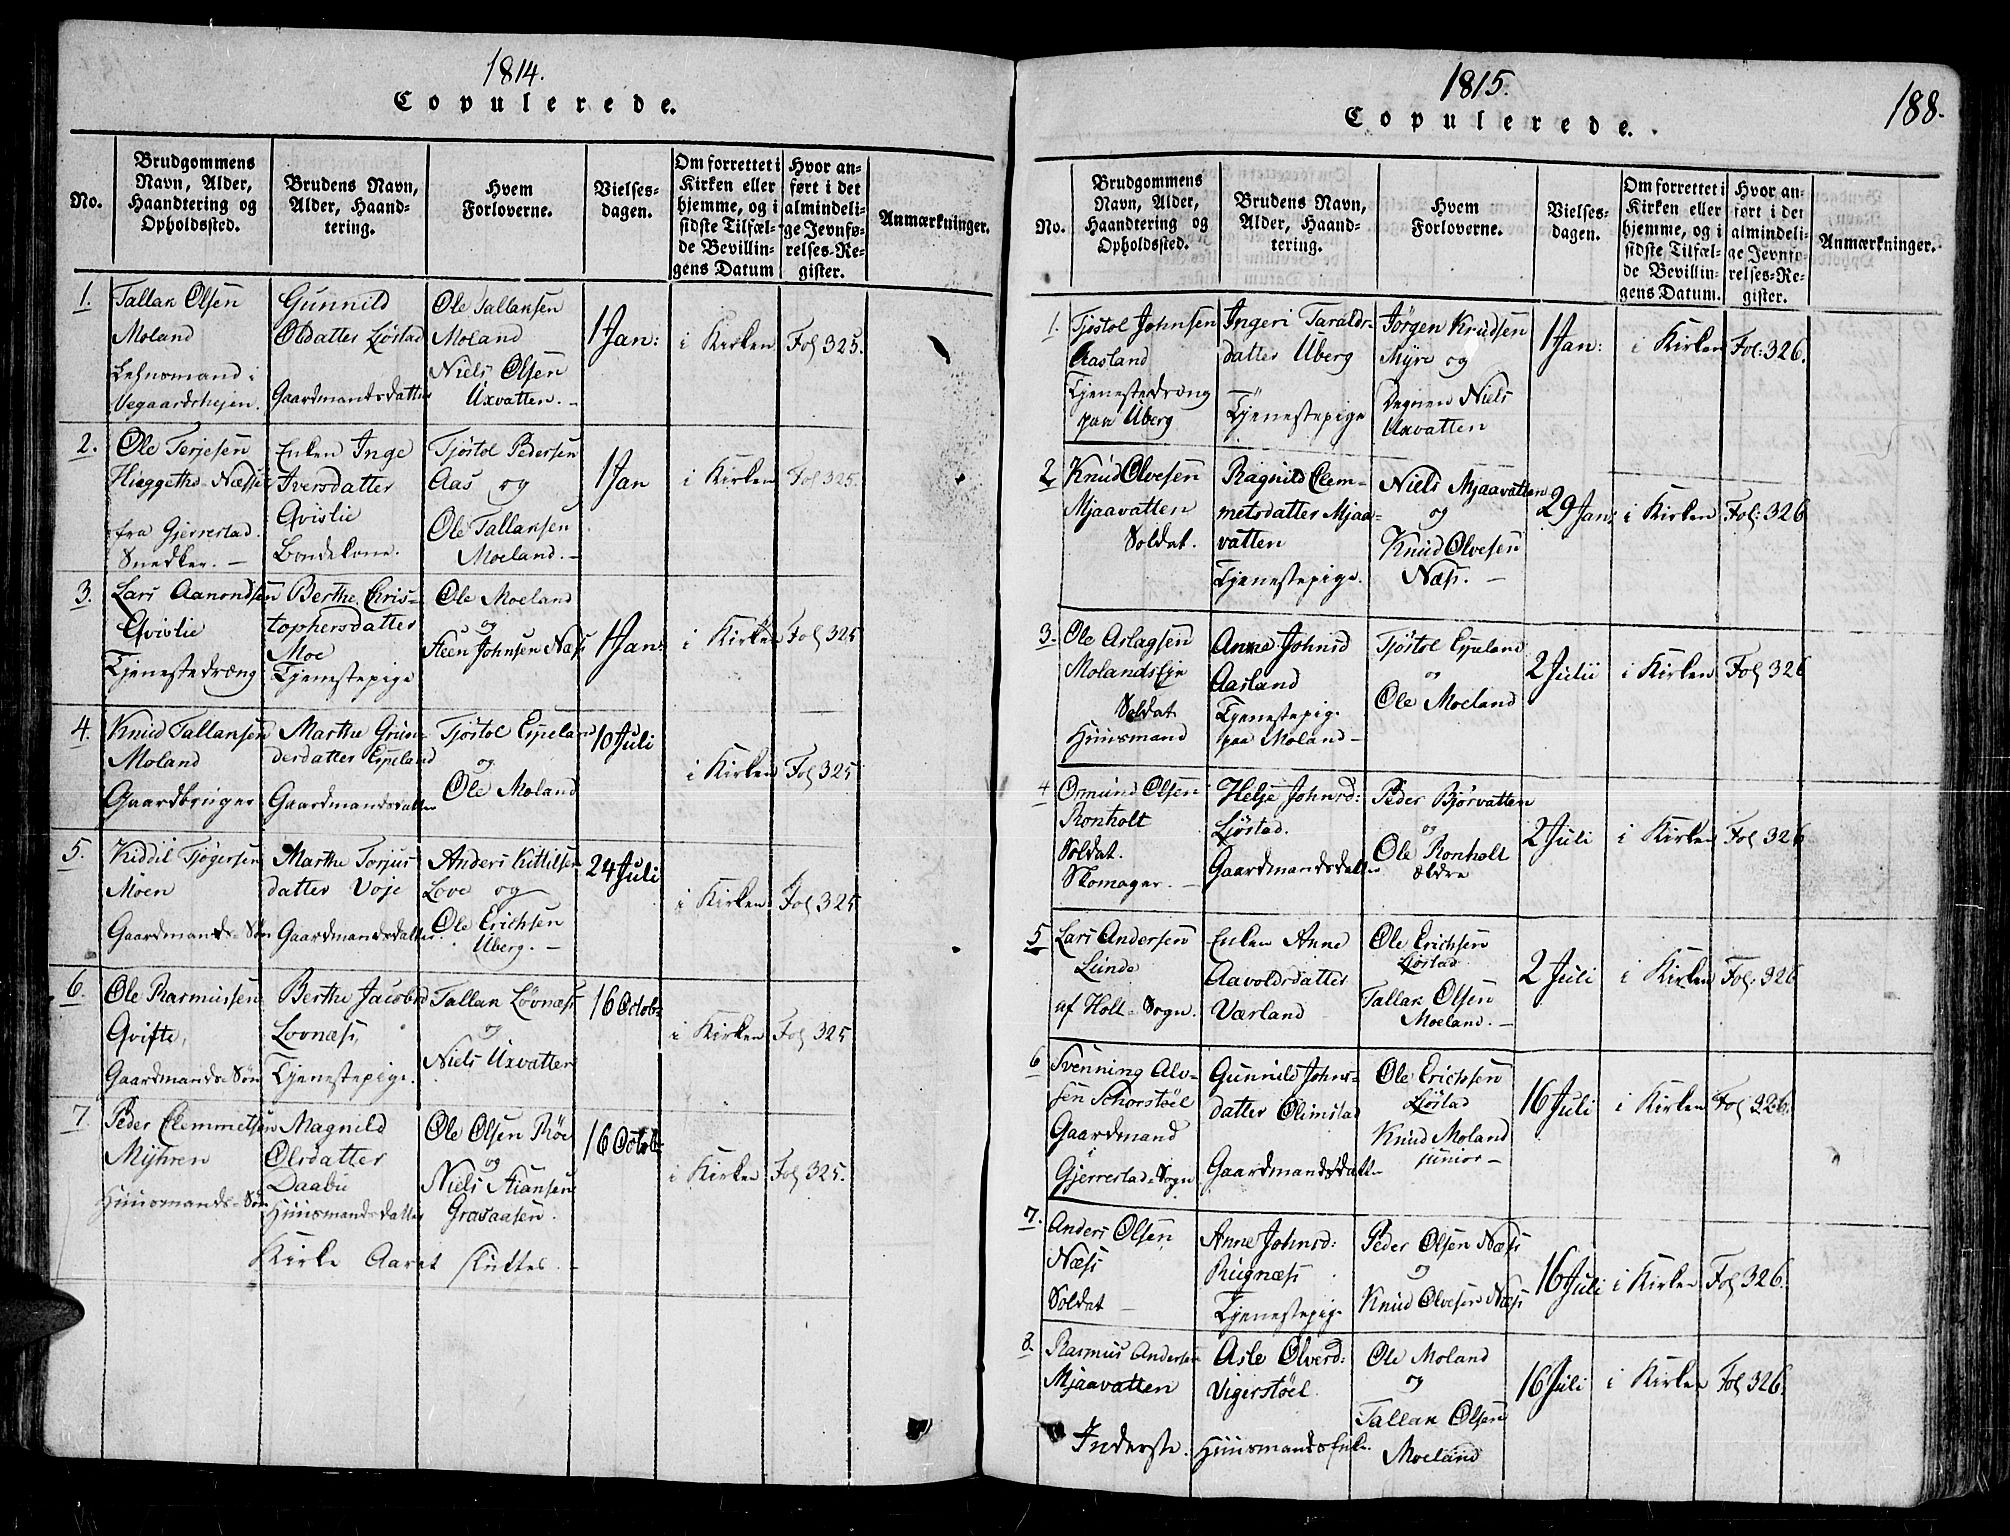 1814.
Copulerede.
No.
Brudgommens Navn, Alder, Haandtering og Opholdssted.
Brudens Navn, Alder, Haandtering.
Hvem Forloverne.
Vielsesdagen.
Om forrettet i Kirken eller hjemme, og i sidste Tilfælde Bevillingens Datum
Hvor anført i det almindelige Jevnførelses-Register.
Anmærkninger.
1.
Tallak Olsen
Moland
Lehnsmand i
Vegaardsheien.
Gunnild
Olsdatter Ljøstad
Gaardmandsdatter
Ole Tallaksen
Moland
Niels Olsen
Uxvatten. –
1 Jan:
i Kirken
Fol 325.
2.
Ole Terjesen
fra Gjerrestad.
Snedker. –
Enken Inge
Iversdatter
Qvistie
Bondekone.
Tjøstol Pedersen
Aas og
Ole Tallaksen
Moeland. –
1 Jan
i Kirken
Fol 325.
3.
Lars Aanondsen
Qvistie
Tjenestedræng
Berthe Chris-
tophersdatter
Moe
Tjenestepige
Ole Moeland
og
Steen Johnsen Næss
1 Jan:
i Kirken
Fol 325
4.
Knud Tallaksen
Moland
Gaardbruger
Marthe Gun-
dersdatter Espeland
Gaardmandsdatter
Tjøstol Espeland
og
Ole Moland
10 Juli
i Kirken
Fol 325
5.
Kiddil Tjøgersen
Moen
Gaardmands-Søn
Marthe Torjus
datter Voje
Gaardmandsdatter
Anders Kittilsen
Løve og
Ole Erichsen
Uberg. –
24 Juli
i Kirken
Fol 325
6.
Ole Rasmussen
Qvifte,
Gaardmands-Søn
Berthe Jacobsd
Lovnæss,
Tjenestepige.
Tallak Løvnæss
og
Niels Uxvatten
16 Octob:
i Kirken
Fol 325
7.
Peder Clemmetsen
Myhren
Huusmands-Søn
Magnild
Olsdatter
Daabu
Huusmandsdatter
Ole Olsen Røe
og
Niels Stiansen
Gravaasen.
16 Octob:
i Kirken
Fol 325.
Kirke Aaret sluttes. –
1815.
188.
Copulerede.
No.
Brudgommens Navn, Alder, Haandtering og Opholdssted.
Brudens Navn, Alder, Haandtering.
Hvem Forloverne.
Vielsesdagen.
Om forrettet i Kirken eller hjemme, og i sidste Tilfælde Bevillingens Datum.
Hvor anført i det almindelige Jevnførelses-Register.
Anmærkninger.
1.
Tjøstol Johnsen
Aasland
Tjenestedræng
paa Uberg
Ingeri Tarald-
datter Uberg
Tjenestepige
Jørgen Knudsen
Myre og
Degnen Niels
Uxvatten
1 Jan:
i Kirken
Fol: 326.
2
Knud Olvesen
Mjaavatten
Soldat.
Ragnild Clem-
metsdatter Mjaa-
vatten
Tjenestepige.
Niels Mjaavatten
og
Knud Olvesen
Næss. –
29 Jan:
i Kirken
Fol: 326
3.
Ole Aslagsen
Molandseje
Soldat
Huusmand
Anne Johnsd
Aasland
Tjenestepige
paa Moland –
Tjøstol Espeland
og
Ole Moeland
2 Julii
i Kirken
Fol 326
4
Ormund Olsen
Ronholt
Soldat.
Skomager. –
Helje Johnsd:
Ljøstad.
Gaardmandsdatter
Peder Bjørvatten
og
Ole Ronholt
ældre
2 Juli
i Kirken
Fol 326
5
Lars Andersen
Lunde
af Holt-Sogn.
Enken Anne
Aavoldsdatter
Værland
Ole Erichsen
Ljøstad
Tallak Olsen
Moeland. –
2 Juli
i Kirken
Fol: 326
6
Svenning Alv-
sen Schorstøel
Gaardmand
Gjerrestad-Sogn
Gunnild Johns-
datter Olimstad
Gaardmandsdatter
Ole Erichsen
Ljøstad
Knud Moland
junior –
16 Juli
i Kirken
Fol 226.
7.
Anders Olsen
Næss
Soldat –
Anne Johnsd:
Rugnæss
Tjenestepige
Peder Olsen Næss
og
Knud Olvesen Næss
16 Juli
i Kirken
Fol 326.
8.
Rasmus Andersen
Mjaavatten
Inderste.
Asle Olversd:
Vigerstøel.
Huusmandsenke.
Ole Moland
og
Tallak Olsen
Moeland
16 Juli
i Kirken
Fol 326.